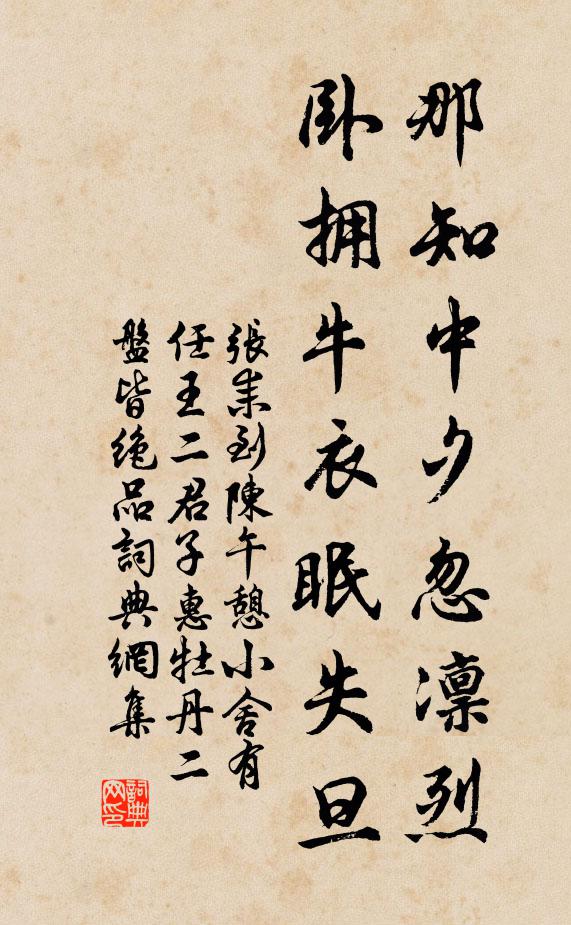 那知中夕忽凛烈
卧拥牛衣眠失旦
張耒到陳午憩小舍有
任王二君子惠牡丹二
盤皆絶品詞典網集
詞典
网印